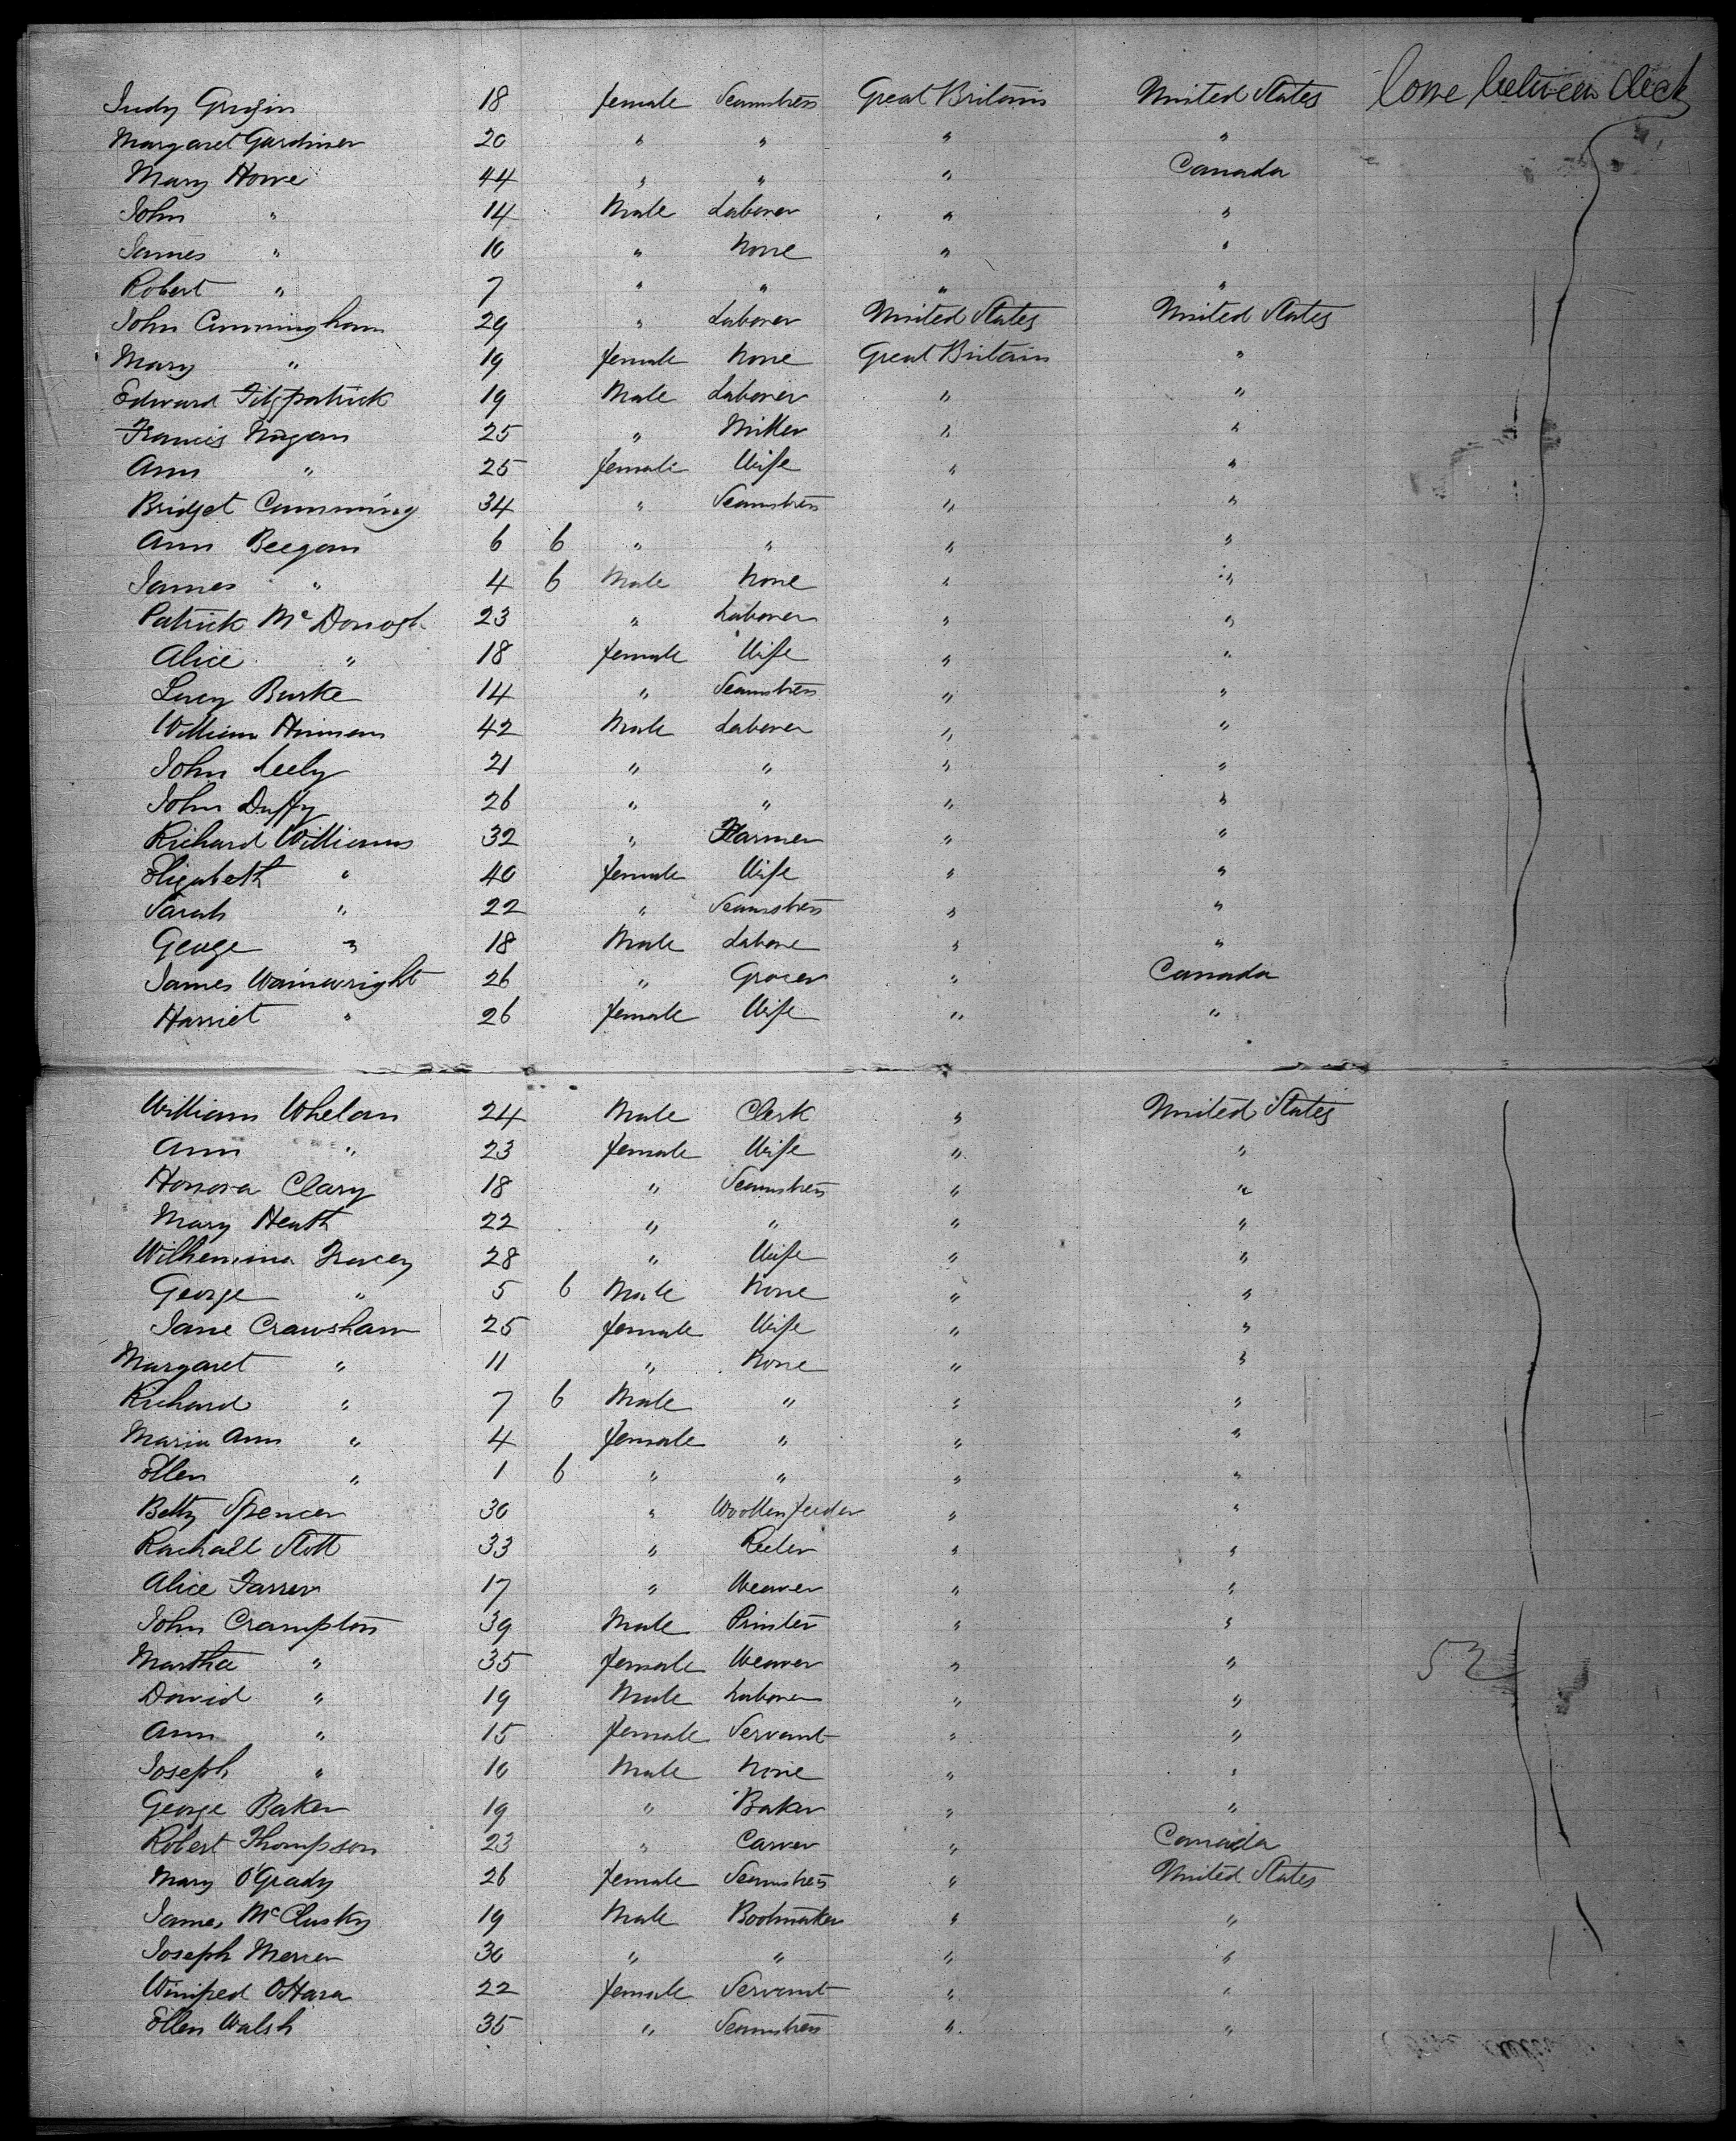 Judy Griffin 18 female Seamstress Great Britain United States lowe between deck
Margaret Gardiner 20 " " " "
Mary Howe 44 " " " Canada
John " 14 Male Laborer " "
James " 10 " None " "
Robert " 7 " " " "
John Cunningham 29 " Laborer United States United States
Mary " 19 female None Great Britain "
Edward Fitzpatrick 19 Male Laborer " "
Francis 25 " Miller " "
Ann " 25 female Wife " "
Bridget Cumming 34 " Seamstress " "
Ann Beegan 6 6 " " " "
James " 4 6 Male None " "
Patrick McDonogh 23 " Laborer " "
Alice " 18 female Wife " "
Lucy Burke 14 " Seamstress " "
William 42 Male Laborer " "
John 21 " " " "
John Duffy 26 " " " "
Richard Williams 32 " Farmer " "
Elizabeth " 40 female Wife " "
Sarah " 22 " Seamstress " "
George " 18 Male Labore " "
James Wainwright 26 " Grocer " Canada
Harriet " 26 female Wife " "
William Whelan 24 Male Clerk " United States
Ann " 23 female Wife " "
Honora Clary 18 " Seamstress " "
Mary Heath 22 " " " "
Wilhemina Tracey 28 " Wife " "
George " 5 6 Male None " "
Jane Crawshaw 25 female Wife " "
Margaret " 11 " None " "
Richard " 7 6 Male " " "
Maria Ann " 4 female " " "
Ellen " 1 6 " " " "
Betty Spencer 30 " Woollen feeder " "
Rachall Stott 33 " Reeler " "
Alice Farrer 17 " Weaver " "
John Crampton 39 Male Printer " "
Martha " 35 female Weaver " " 52
David " 19 Male Laborer " "
Ann " 15 female Servant " "
Joseph " 10 Male None " "
George Baker 19 " Baker " "
Robert Thompson 23 " Carver " Canada
Mary O'Grady 26 female Seamstress " United States
James McClusky 19 Male Bootmaker " "
Joseph Mercer 30 " " " "
Winifred O'Hara 22 female Servant " "
Ellen Walsh 35 " Seamstress " "